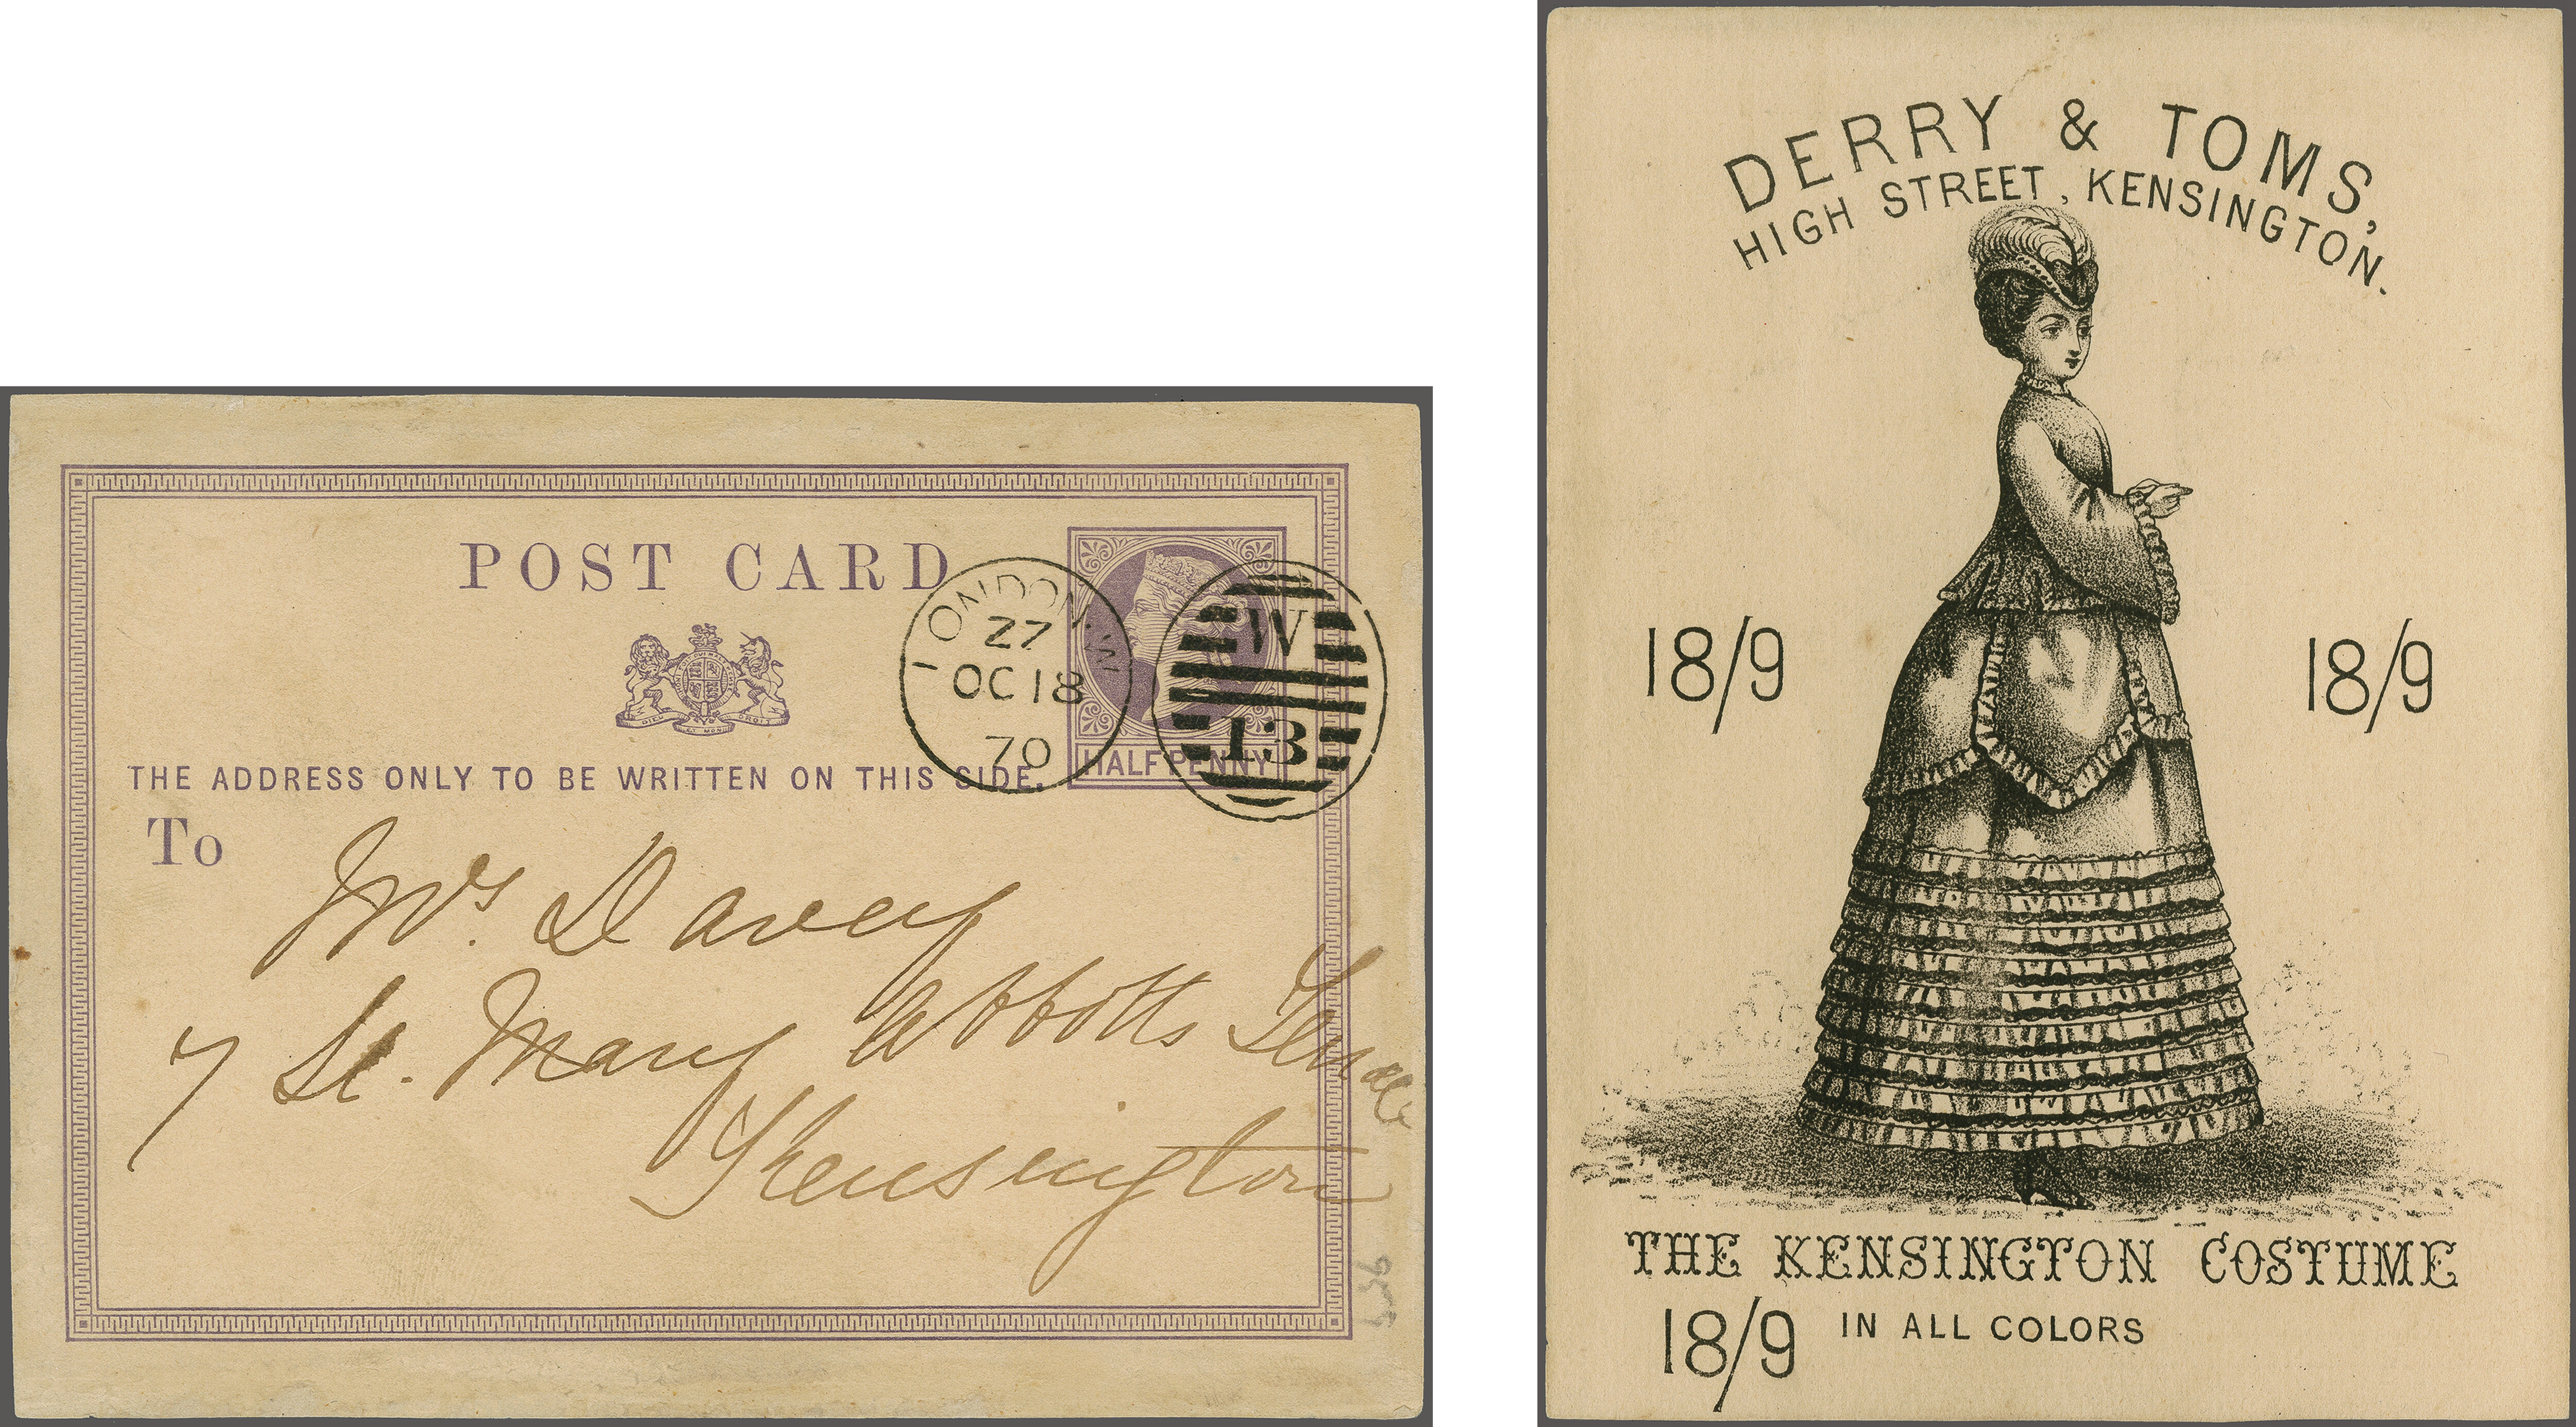 POST CARD
THE ADDRESS ONLY TO BE WRITTEN ON THIS SIDE.
HALFPENNY
LONDON.W
27
OC 18
70
W
13
To
Mrs. Davey
7 St. Mary Abbotts Terrace
Kensington
DERRY & TOMS,
HIGH STREET, KENSINGTON.
18/9
18/9
THE KENSINGTON COSTUME
18/9 IN ALL COLORS